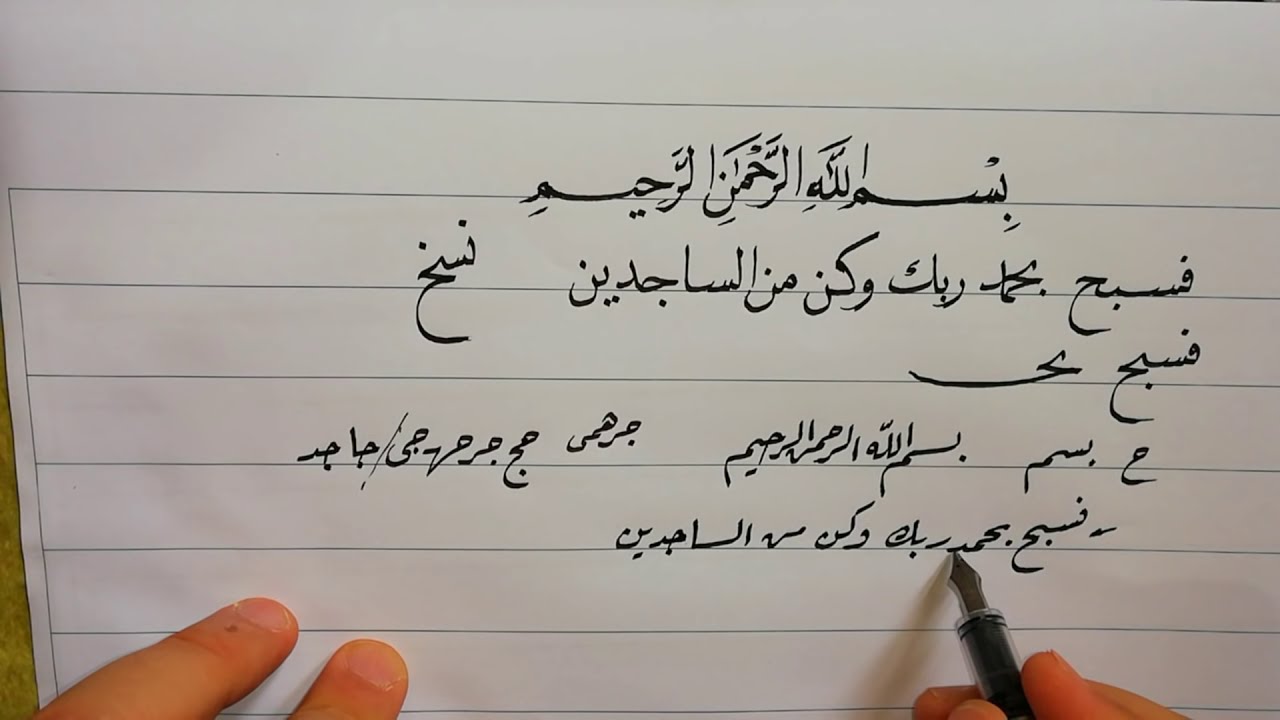 بِسْمِ اللَّهِ الرَّحْمَٰنِ الرَّحِيمِ
فسبح بحمد ربك وكن من الساجدين نسخ
فسبح بحـ
ح بسم بسم اللّه الرحمن الرحيم جرهمى حج جر حهـ جى / جا جد
فسبح بحمد ربك وكن من الساجدين